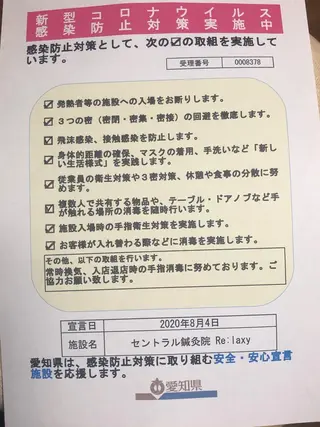 新型コロナウイルス
感染防止対策実施中
感染防止対策として、次の☑の取組を実施して
います。
受理番号 0008378
☑ 発熱者等の施設への入場をお断りします。
☑ 3つの密（密閉・密集・密接）の回避を徹底します。
☑ 飛沫感染、接触感染を防止します。
☑ 身体的距離の確保、マスクの着用、手洗いなど「新し
い生活様式」を実践します。
☑ 従業員の衛生対策や3密対策、休憩や食事の分散に努
めます。
☑ 複数人で共有する物品や、テーブル・ドアノブなど手
が触れる場所の消毒を随時行います。
☑ 施設入場時の手指衛生対策を実施します。
☑ お客様が入れ替わる際などに消毒を実施します。
その他、以下の取組を行います。
常時換気、入店退店時の手指消毒に努めております。ご
協力お願い致します。
宣言日 2020年8月4日
施設名 セントラル鍼灸院 Re:laxy
愛知県は、感染防止対策に取り組む安全・安心宣言
施設を応援します。
愛知県